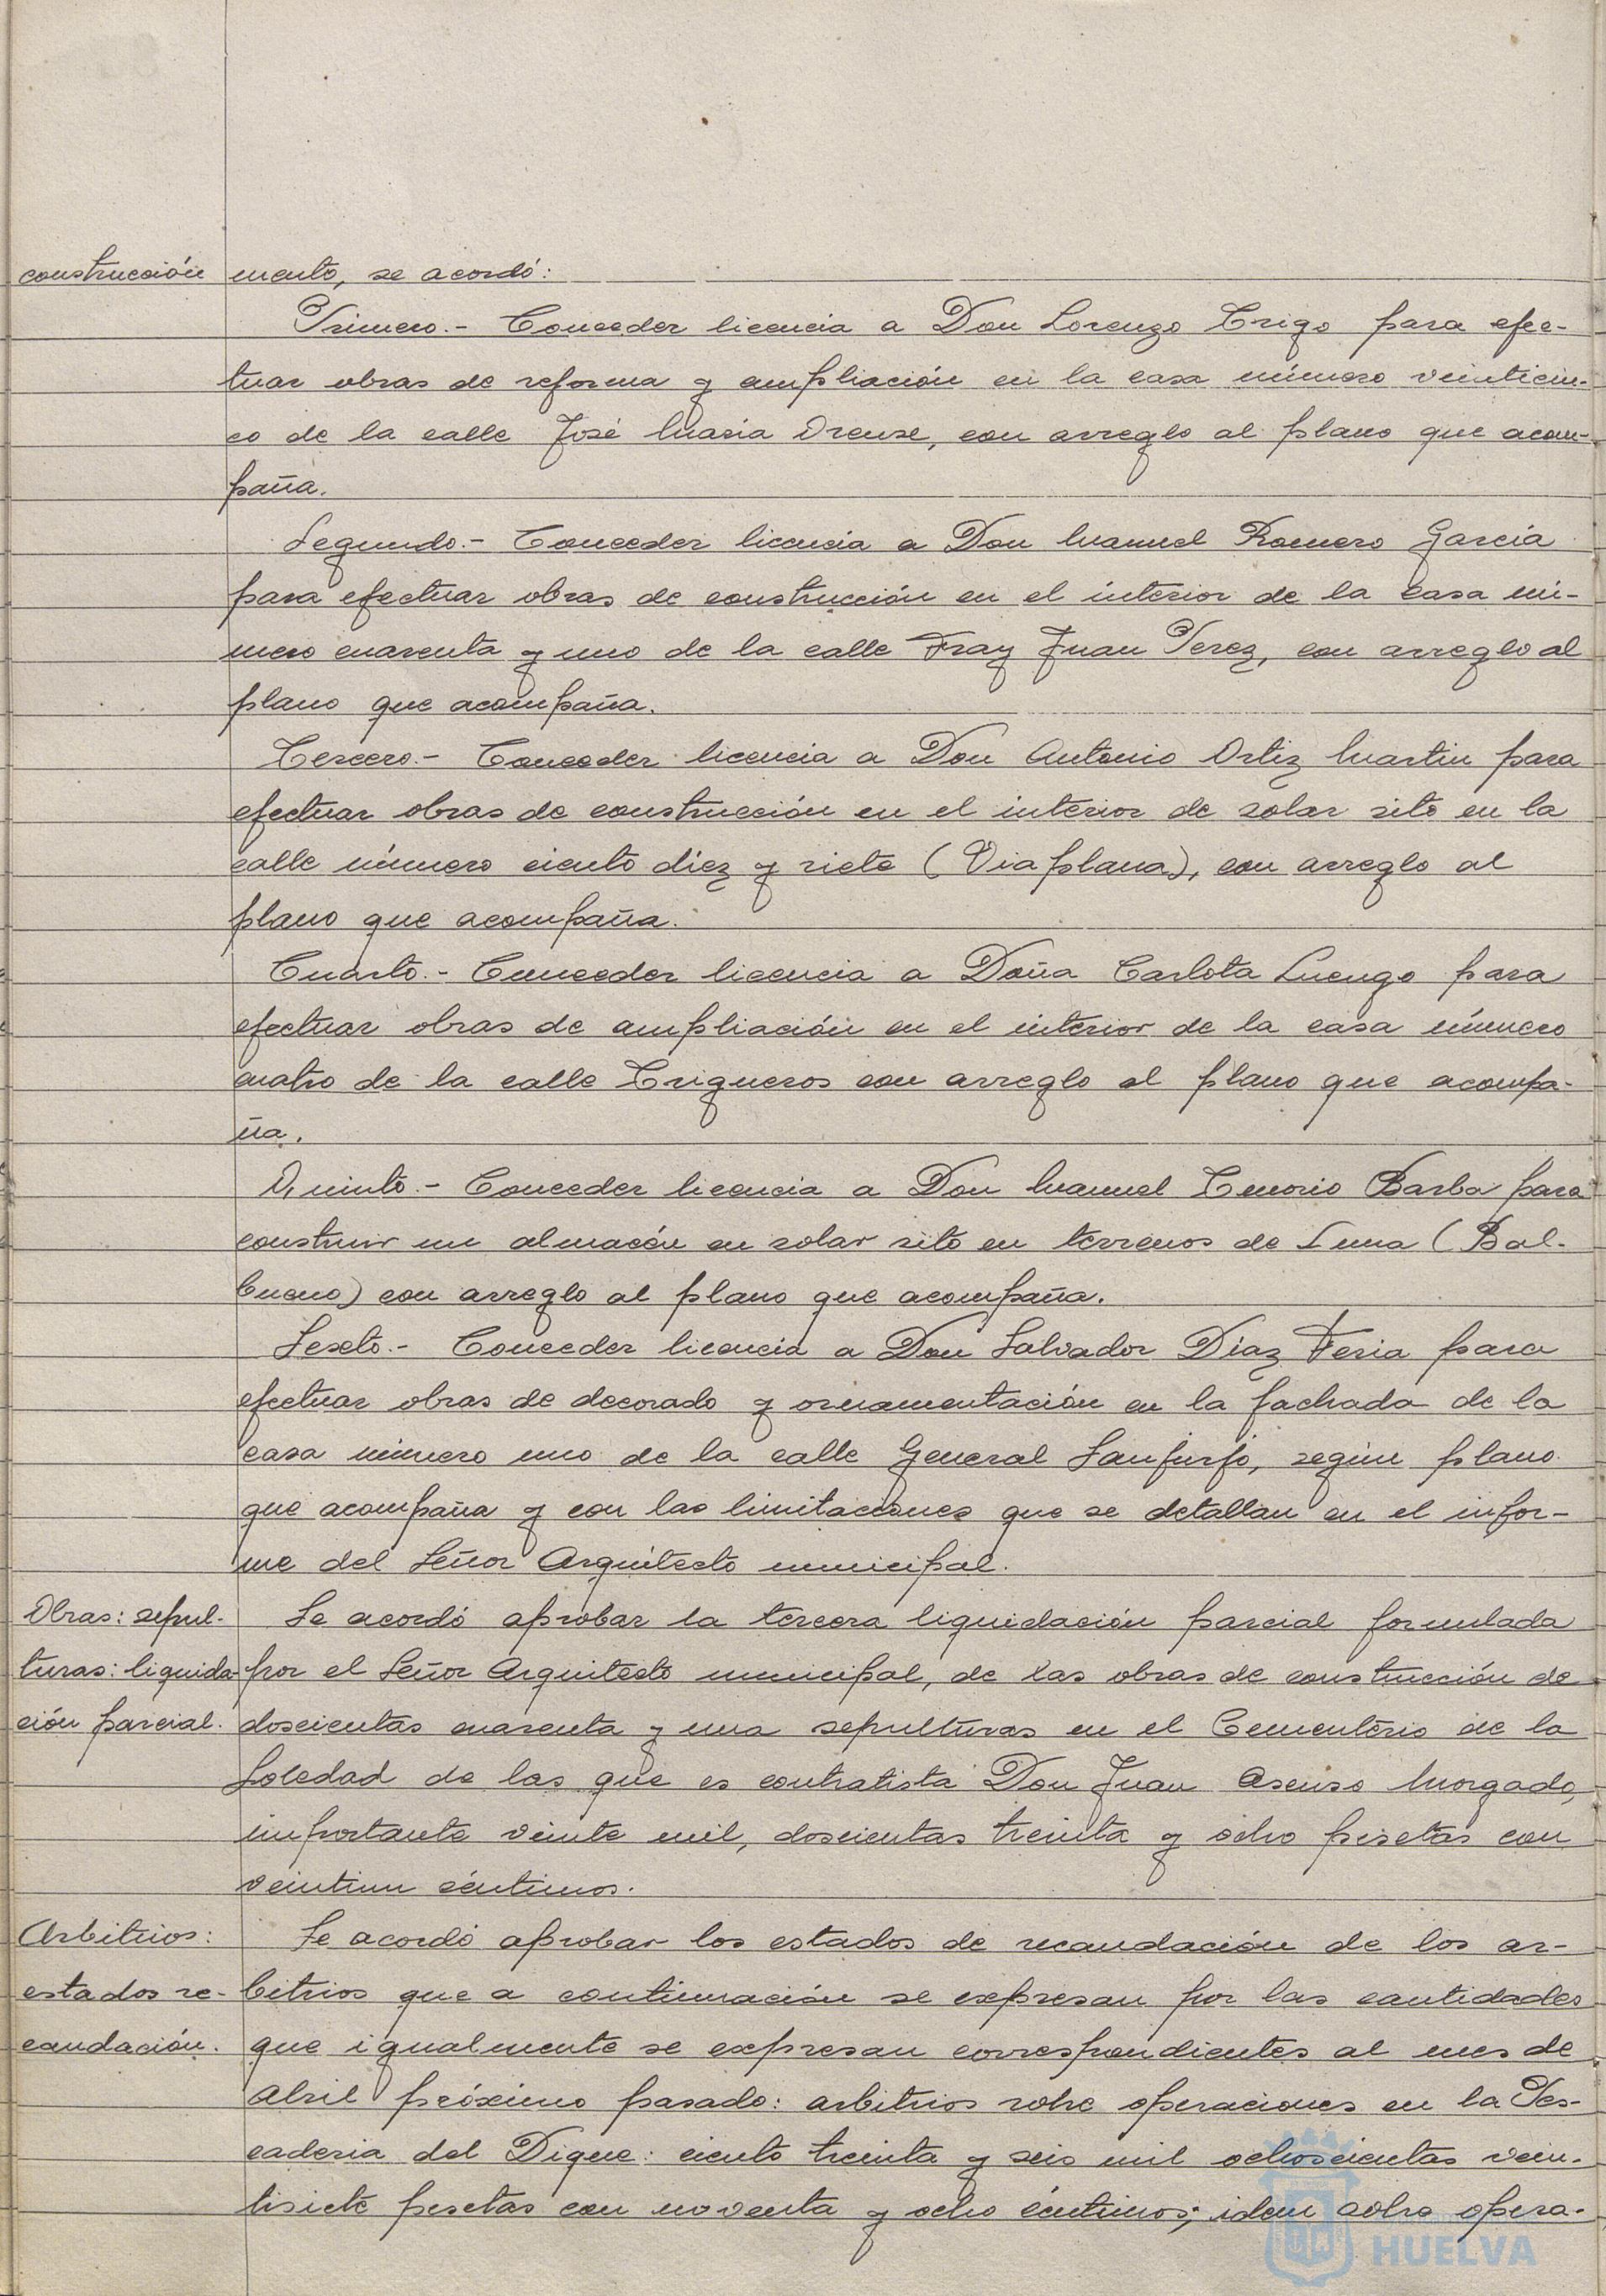 construcción
mento, se acordó:
Primero.- Conceder licencia a Don Lorenzo Trigo para efec-
tuar obras de reforma y ampliación en la casa número veinticin-
co de la calle José Maria Orense, con arreglo al plano que acom-
paña.
Segundo.- Conceder licencia a Don Manuel Romero García
para efectuar obras de construcción en el interior de la casa nú-
mero cuarenta y uno de la calle Fray Juan Perez, con arreglo al
plano que acompaña.
Tercero.- Conceder licencia a Don Antonio Ortiz Martin para
efectuar obras de construcción en el interior de solar sito en la
calle número ciento diez y siete (Viaplana), con arreglo al
plano que acompaña.
Cuarto.- Conceder licencia a Doña Carlota Luengo para
efectuar obras de ampliación en el interior de la casa número
cuatro de la calle Trigueros con arreglo al plano que acompa-
ña.
Quinto.- Conceder licencia a Don Manuel Tenorio Barba para
construir un almacén en solar sito en terrenos de Luna (Bal-
bueno) con arreglo al plano que acompaña.
Sexto.- Conceder licencia a Don Salvador Díaz Feria para
efectuar obras de decorado y ornamentación en la fachada de la
casa número uno de la calle General Sanjurjo, según plano
que acompaña y con las limitaciones que se detallan en el infor-
me del Señor Arquitecto municipal.
Obras: sepul-
turas: liquida-
ción parcial.
Se acordó aprobar la tercera liquidación parcial formulada
por el Señor Arquitecto municipal, de las obras de construcción de
doscientas cuarenta y una sepulturas en el Cementerio de la
Soledad de las que es contratista Don Juan Asenso Morgado,
importante veinte mil, doscientas treinta y ocho pesetas con
veintiun céntimos.
Arbitrios:
estados re-
caudación.
Se acordó aprobar los estados de recaudación de los ar-
bitrios que a continuación se expresan por las cantidades
que igualmente se expresan correspondientes al mes de
abril próximo pasado: arbitrios sobre operaciones en la Pes-
caderia del Dique: ciento treinta y seis mil ochoscientas vein-
tisiete pesetas con noventa y ocho céntimos; idem sobre opera-
HUELVA